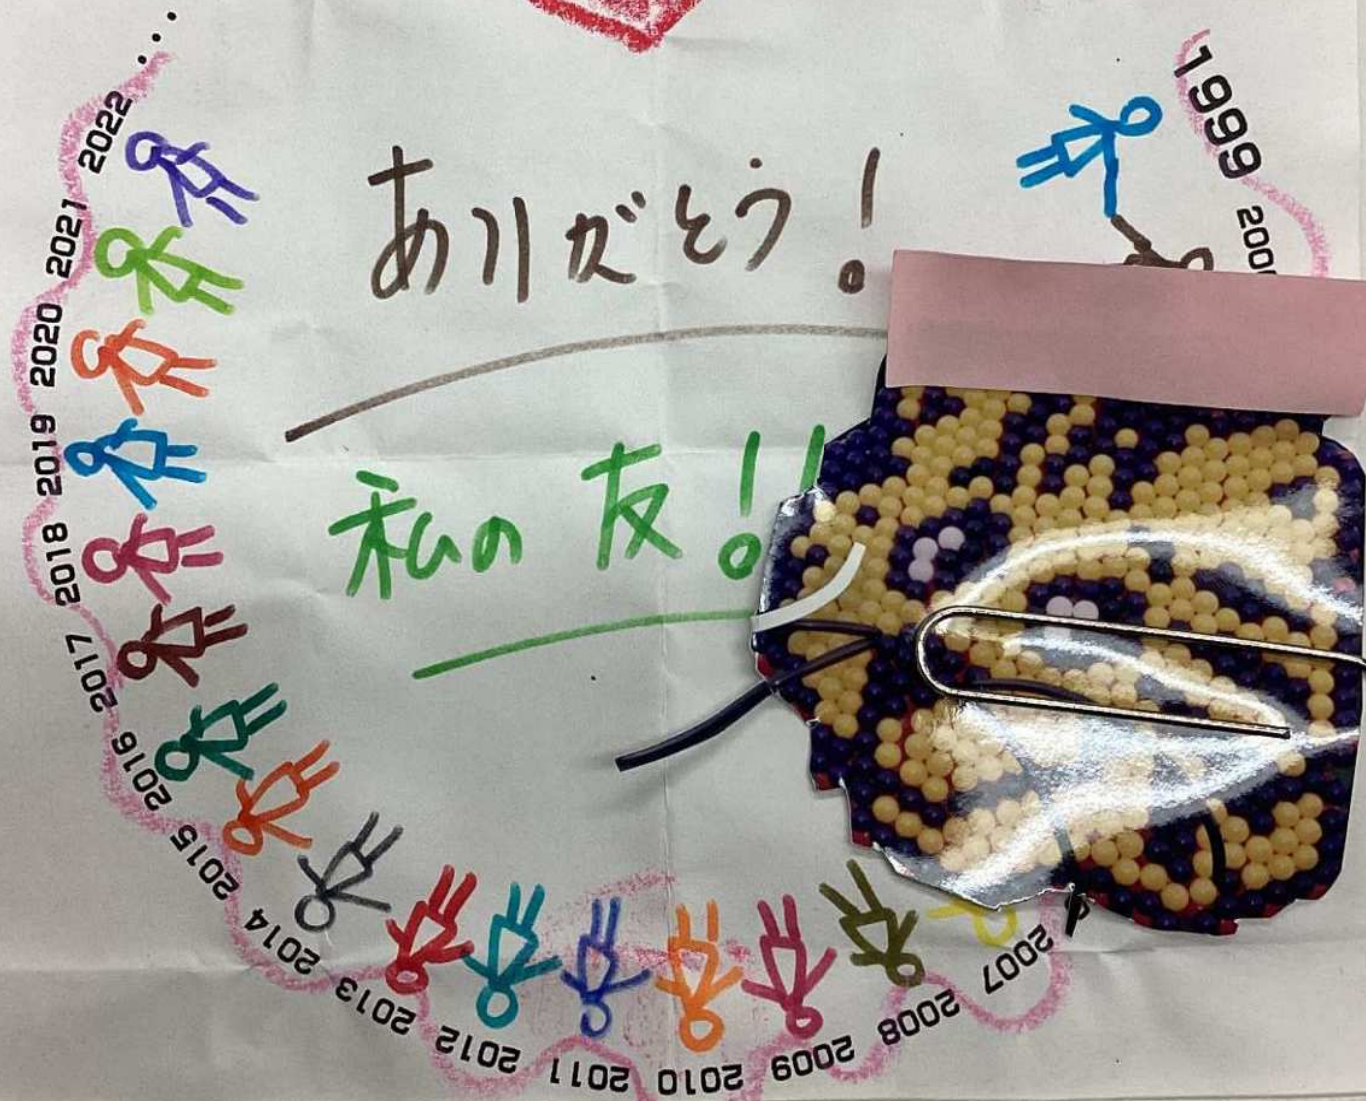 ありがとう!
私の 友!!
1999
2007
2008
2009
2010
2011
2012
2013
2014
2015
2016
2017
2018
2019
2020
2021
2022
...